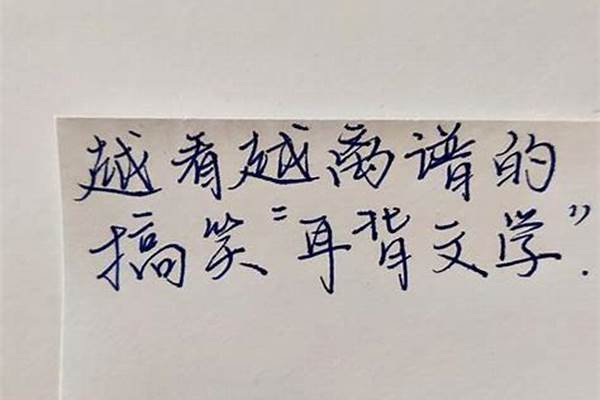 越看越离谱的
搞笑“耳背文学”.